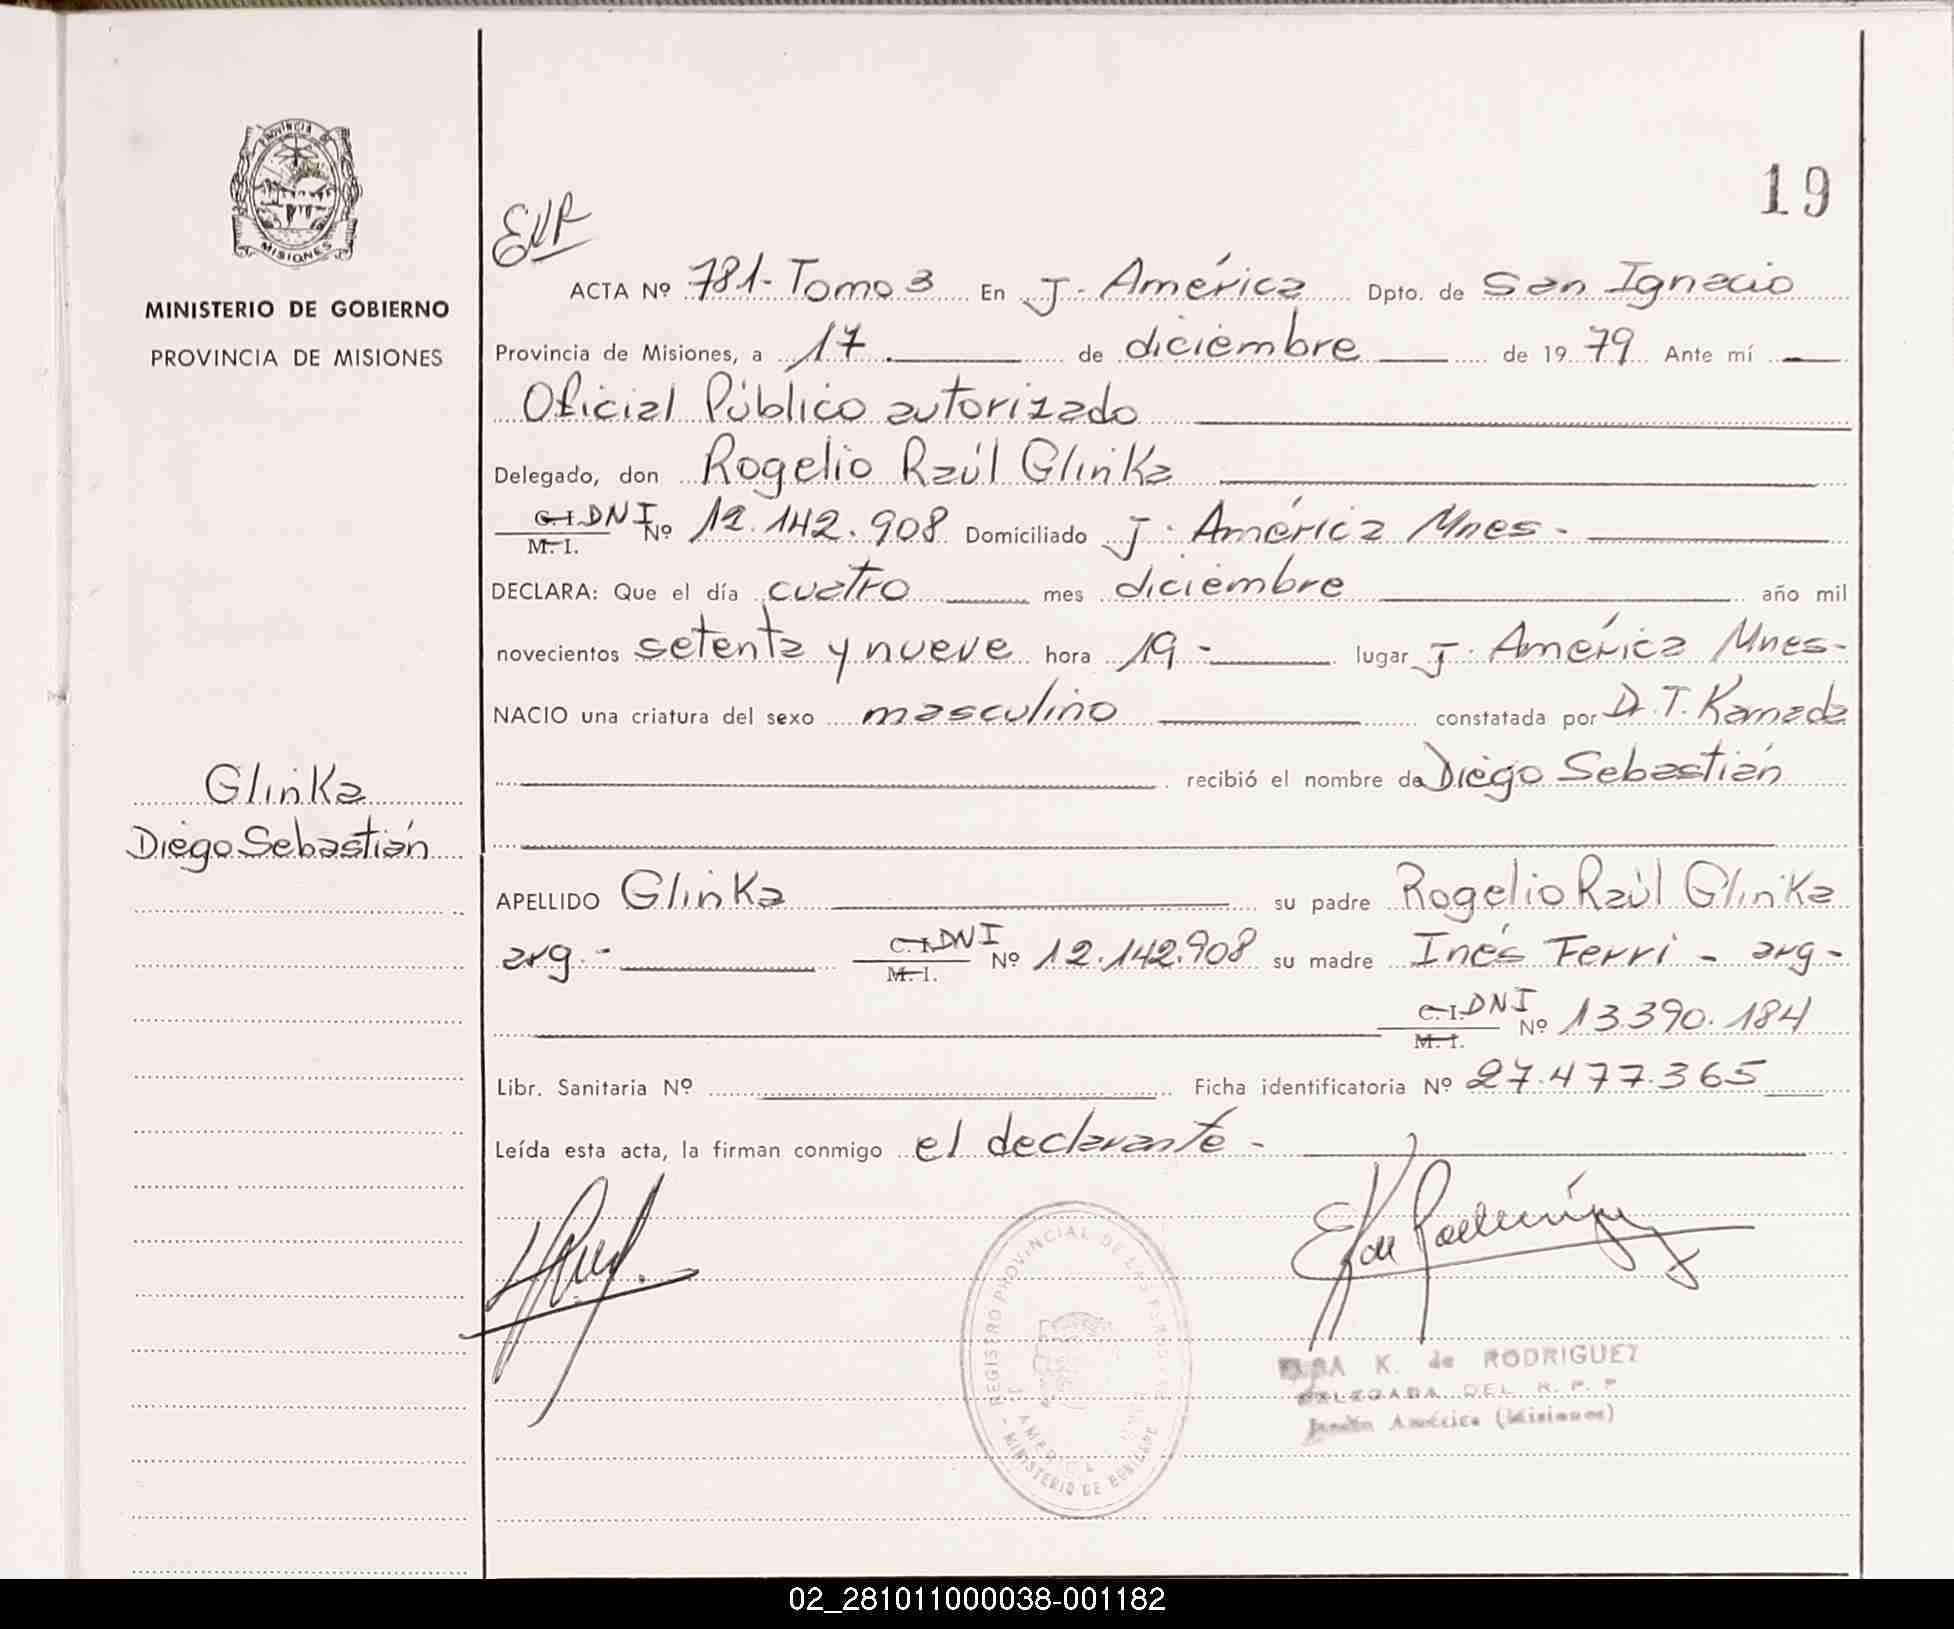 PROVINCIA DE
MISIONES
MINISTERIO DE GOBIERNO
PROVINCIA DE MISIONES
19
ACTA Nº 781- Tomo 3 En J. América Dpto. de San Ignacio
Provincia de Misiones, a 17 de diciembre de 1979 Ante mí
Oficial Público autorizado
Delegado, don Rogelio Raúl Glinka
C.I. DNI Nº 12.142.908 Domiciliado J. América Mnes.
M.I.
DECLARA: Que el día cuatro mes diciembre año mil
novecientos setenta y nueve hora 19 - lugar J. América Mnes-
NACIO una criatura del sexo masculino constatada por Dr. T. Kamada
recibió el nombre de Diego Sebastián
Glinka
Diego Sebastián
APELLIDO Glinka su padre Rogelio Raúl Glinka
arg.- C.I. DNI Nº 12.142.908 su madre Inés Ferri - arg-
M.I.
C.I. DNI Nº 13.390.184
M.I.
Libr. Sanitaria Nº Ficha identificatoria Nº 27.477.365
Leída esta acta, la firman conmigo el declarante -
REGISTRO PROVINCIAL DE LAS PERSONAS
AMERICA
MINISTERIO DE GOBIERNO
K. de RODRIGUEZ
DELEGADA DEL R. P. P
Jardín América (Misiones)
02_281011000038-001182